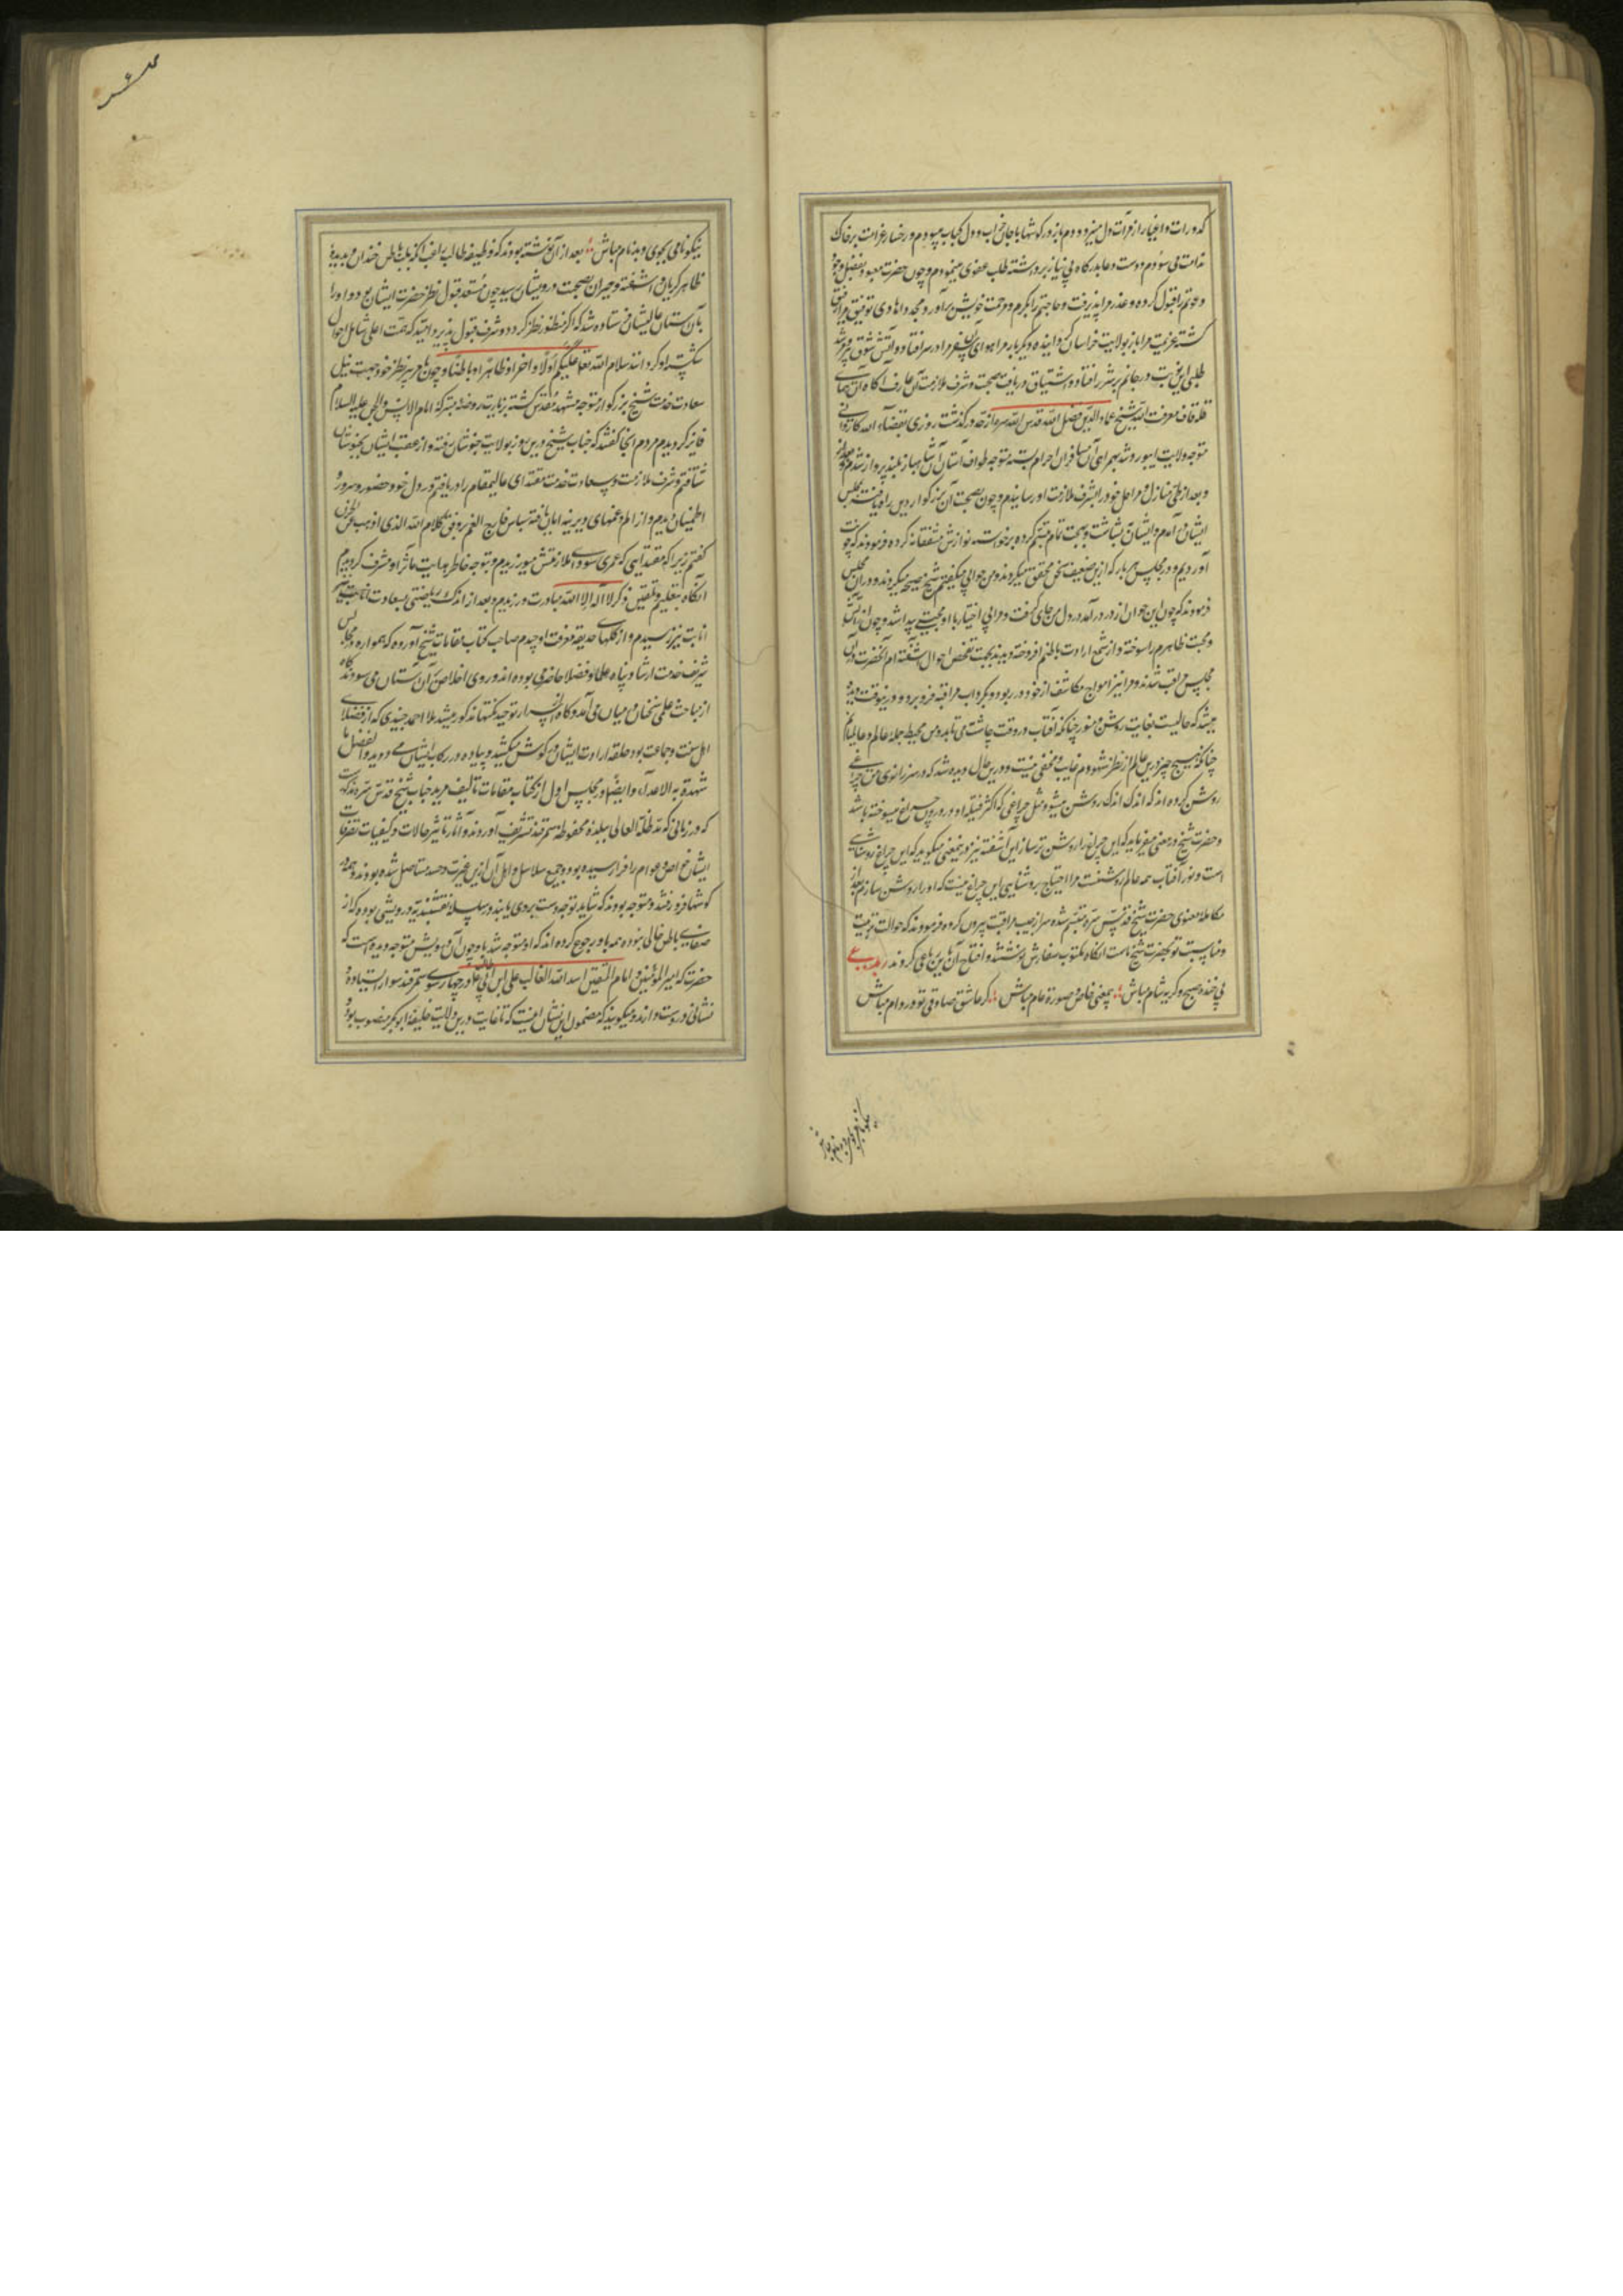 کدورات و اغیار از مرآت دل میزدودم و در گوشها با جان خراب و دل کباب میبودم و رخسار غرامت بر خاک
ندامت می سودم و دست دعا بدرگاه بی نیاز برداشته طلب عفو می نمودم و چون حضرت معبود بفضل وجود
دعوتم را قبول کرده و عذر مرا پذیرفت و حاجتم را بکرم و مرحمت خویش برآورد و مجددا هادی توفیق مرا رفیق
گشته عزیمت مرا باز بولایت خراسان گردانیده دیگر بار مرا هوای آن سفر مراد در سر افتاد و آتش شوق پیر مرشد
طلبی این نوبت در جانم پرشرر افتاد و اشتیاق دریافت صحبت و شرف ملازمت آن عارف آگاه آن همای
قله قاف معرفت الله شیخ عماد الدین فضل الله قدس الله سره از حد درگذشت روزی بقضاء الله کاروانی
متوجه ولایت ابیورد شد بهمراهی آن مسافران احرام بسته متوجه طواف آستان آن شاهباز بلند پرواز شدم
و بعد از طی منازل و مراحل خود را بشرف ملازمت او رسانیدم و چون بصحت آن بزرگوار دین راه یافته بمجلس
ایشان آمدم و ایشان بشاشت و بهجت تمام تبسم کرده برخواسته نوازش مشفقانه کرده فرمودند که خوب
آوردیم و در مجلس هر بار که ازین ضعیف سخن تحقیق میکردند و من جوابی میگفتم شیخ تصحیح میکردند و در آن مجلس
فرمودند که چون این جوان از در درآمد در دل من جای گرفت و مرا بی اختیار با او محبتی پیدا شد و چون از آتش
و محبت ظاهرم را سوخته و از شمع ارادت باطنم افروخته دیدند بجهت تفحص احوال آشفته ام آنحضرت در آن
مجلس مراقب شدند و مرا نیز امواج مکاشفه از خود در ربود و بگرداب مراقبه فرو برد و در ینوقت دیده
میشد که حالیست بغایت روشن و منور چنانکه آفتاب در وقت چاشت می تابد و من محیط جمله عالم و عالمیانم
چنانکه هیچ چیز درین عالم از نظر شهودم غایب و مخفی نیست و درین حال دیده شد که در سر زانوی من چراغی
روشن کرده اند که اندک اندک روشن میشود مثل چراغی که اکثر فتیله او در درون چراغ میسوخته باشد
و حضرت شیخ در معنی میفرماید که این چراغ را روشن تر ساز این آشفته نیز در معنی میگوید که این چراغ روشنایی
است و نور آفتاب همه عالم روشنست مرا احتیاج بروشنایی این چراغ نیست که او را روشن سازم بعد از
مکالمه معنوی حضرت شیخ قدس سره تبسم شده سر از جیب مراقبت بیرون کرده فرمودند که حوالت تربیت
و مناسبت تو بحضرت شیخ ماست آنگاه مکتوب سفارش نوشتند و افتتاح آن باین رباعی کردند رباعی
بی خنده صبح و گریه شام مباش در معنی خاص و صورة عام مباش گر عاشق صادقی تو در دام مباش
نیکو نامی بجوی و بدنام مباش
نیکو نامی بجوی و بدنام مباش بعد از آن نوشته بودند که وظیفه طالب راغب آنکه بباطن خندان و بدیده
ظاهر گریان آشفته و حیران بصحبت درویشان رسید چون مستعد قبول نظر حضرت ایشان بود او را
بآن آستان عالیشان فرستاده شد که اگر منظور نظر گردد و شرف قبول پذیرد امید که همت اعلی شامل احوال
شکسته او گردانند سلام الله تعالی علیکم اولا و اخرا و ظاهرا و باطنا و چون ما هر سر نظر خود بجهت نیل
سعادت خدمت شیخ بزرگوار متوجه مشهد مقدس گشته بزیارت روضه متبرکه امام الانس و الجن علیه السلام
فایز گردیدیم مردم آنجا گفتند که جناب شیخ درین روز بولایت خبوشان رفته و از عقب ایشان بخبوشان
شتافتم و شرف ملازمت و سعادت خدمت مقتدای عالیمقام را دریافتم و در دل خود حضور و سرور
اطمینان دیدم و از الم و غمهای دیرینه امان یافته سپاس فارج الغم بر وفق کلام الله الذی اذهب عنی الحزن
گفتم زیرا که مقتدایی که عمری سودای ملازمتش میورزیدم و بتوجه خاطر هدایت مآثر او مشرف گردیدیم
آنگاه بتعلیم و تلقین ذکر لا اله الا الله مبادرت ورزیدم و بعد از اندک ریاضتی بسعادت
انابت نیز رسیدم و از گلهای حدیقه معرفت او چیدم صاحب کتاب مقامات شیخ آورده که همواره در مجالس
شریف خدمت ارشاد پناه علما و فضلا حاضر می بوده اند و روی اخلاص بر آن آستان می سودند گاه
از مباحث علمی سخنان در میان می آمد و گاه از اسرار توحید نکتها مذکور میشد ملا احمد جندی که از فضلای
اهل سنت و جماعت بود حلقه ارادت ایشان در گوش میکشید و پیاده در رکاب ایشان می دوید و الفضل ما
شهدت به الاعداء و ایضا در مجلس اول از کتاب مقامات تالیف مرید جناب شیخ قدس سره مذکورست
که در زمانی که مد ظله العالی ببلده محفوظه سمرقند تشریف آوردند و آثار تاثیر حالات و کیفیات تصرفات
ایشان بخواص و عوام را فرا رسیده بود و جمیع سلاسل و اهل آن از این غیرت و حسد مستاصل شده بودند و همه در
گوشها فرو رفته و متوجه بودند که شاید توجه دست بر وی یابند و در سلسله نقشبندیه درویشی بوده که از
صفای باطن خالی نبوده همه باو رجوع کرده اند که او متوجه شد باو چون آن درویش متوجه دیده است که
حضرت که امیر المؤمنین و امام المتقین اسد الله الغالب علی ابن ابی طالب در چهار سوی سمرقند سوار ایستاده
نشانی در دست دارند و میگویند که مضمون این نشان اینست که تا غایت درین ولایت خلیفه ابوبکر منصوب بود